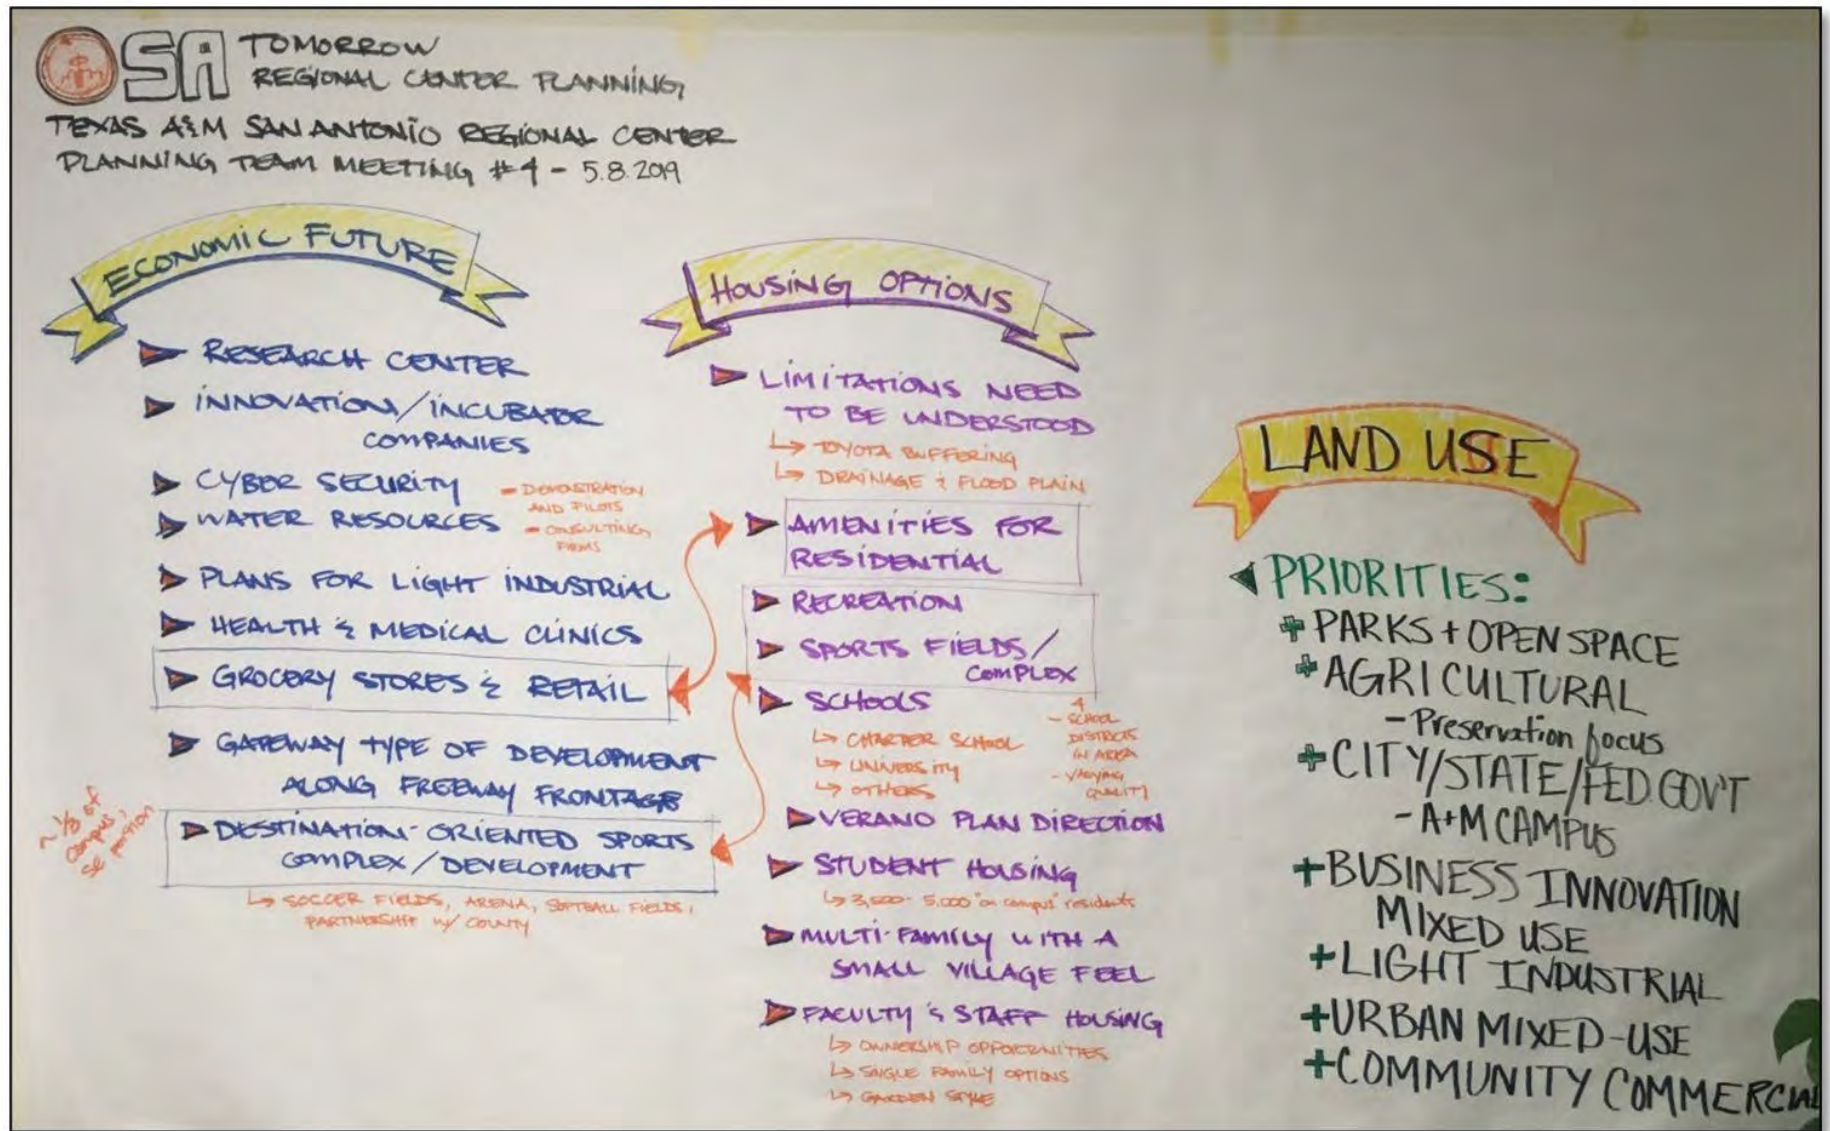 SA TOMORROW
REGIONAL CENTER PLANNING
TEXAS A&M SAN ANTONIO REGIONAL CENTER
PLANNING TEAM MEETING #4 - 5.8.2019
ECONOMIC FUTURE
RESEARCH CENTER
INNOVATION/INCUBATOR
COMPANIES
CYBER SECURITY
WATER RESOURCES
- DEMONSTRATION
AND PILOTS
- CONSULTING
FIRMS
PLANS FOR LIGHT INDUSTRIAL
HEALTH & MEDICAL CLINICS
GROCERY STORES & RETAIL
GATEWAY TYPE OF DEVELOPMENT
ALONG FREEWAY FRONTAGE
DESTINATION-ORIENTED SPORTS
COMPLEX/DEVELOPMENT
~ 1/3 of
campus,
SE portion
↳ SOCCER FIELDS, ARENA, SOFTBALL FIELDS,
PARTNERSHIP w/ COUNTY
HOUSING OPTIONS
LIMITATIONS NEED
TO BE UNDERSTOOD
↳ TOYOTA BUFFERING
↳ DRAINAGE & FLOOD PLAIN
AMENITIES FOR
RESIDENTIAL
RECREATION
SPORTS FIELDS/
COMPLEX
SCHOOLS
↳ CHARTER SCHOOL
↳ UNIVERSITY
↳ OTHERS
4
- SCHOOL
DISTRICTS
IN AREA
- VARYING
QUALITY
VERANO PLAN DIRECTION
STUDENT HOUSING
↳ 3,500 - 5,000 "on campus" residents
MULTI-FAMILY WITH A
SMALL VILLAGE FEEL
FACULTY & STAFF HOUSING
↳ OWNERSHIP OPPORTUNITIES
↳ SINGLE FAMILY OPTIONS
↳ GARDEN STYLE
LAND USE
PRIORITIES:
+ PARKS + OPEN SPACE
+ AGRICULTURAL
- Preservation focus
+ CITY/STATE/FED GOV'T
- A+M CAMPUS
+ BUSINESS INNOVATION
MIXED USE
+ LIGHT INDUSTRIAL
+ URBAN MIXED-USE
+ COMMUNITY COMMERCIAL